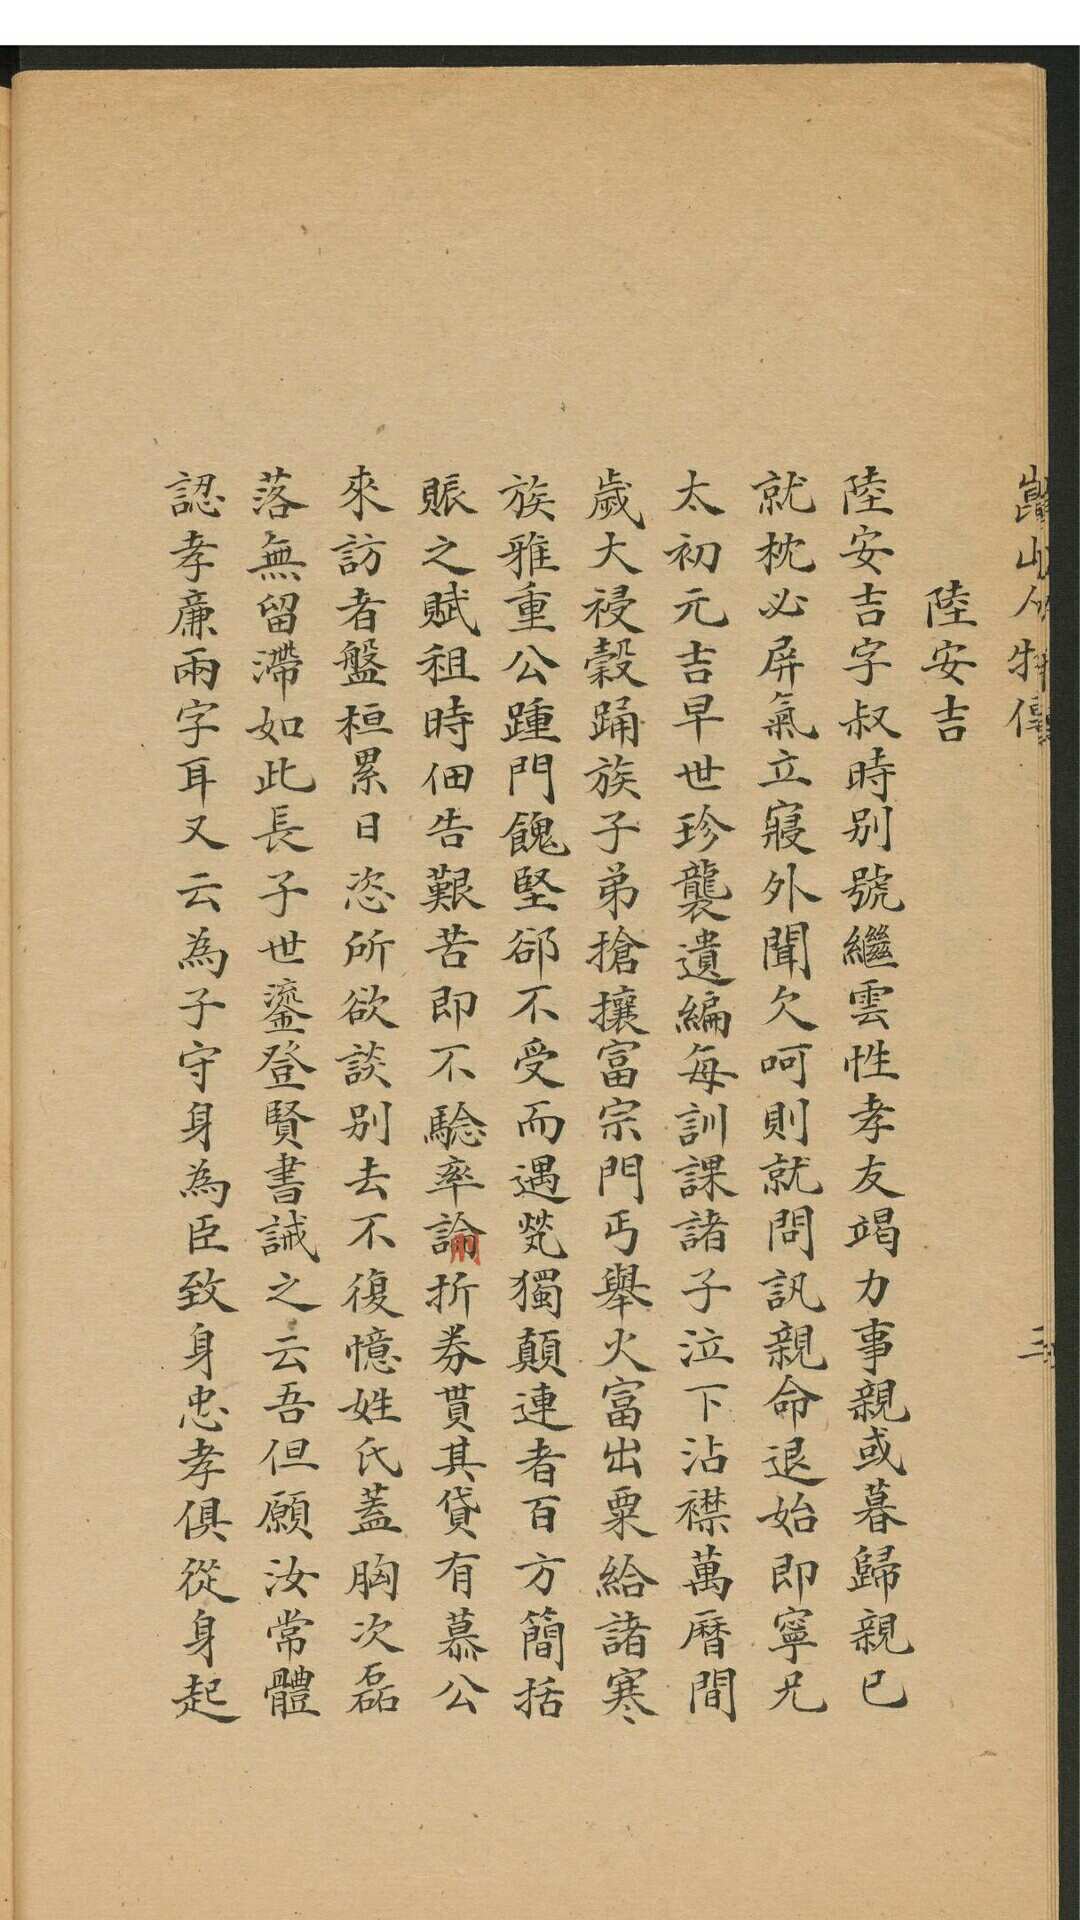 崑山人物傳
三
陸安吉
陸安吉字叔時别號繼雲性孝友竭力事親或暮歸親已
就枕必屏氣立寢外聞欠呵則就問訊親命退始即寧兄
太初元吉早世珍襲遺編每訓課諸子泣下沾襟萬曆間
歲大祲穀踊族子弟搶攘富宗門丐舉火富出粟給諸寒
族雅重公踵門餽堅郤不受而遇煢獨顛連者百方簡括
賑之賦租時佃告艱苦即不驗率論折券貰其貸有慕公
來訪者盤桓累日恣所欲談别去不復憶姓氏蓋胸次磊
落無留滯如此長子世鎏登賢書誡之云吾但願汝常體
認孝廉兩字耳又云為子守身為臣致身忠孝俱從身起